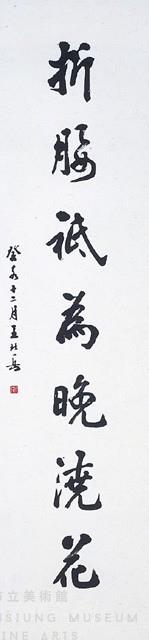 折腰祗為晚澆花
癸亥十二月王北岳
市立美術館
SIUNG MUSEUM
INE ARTS